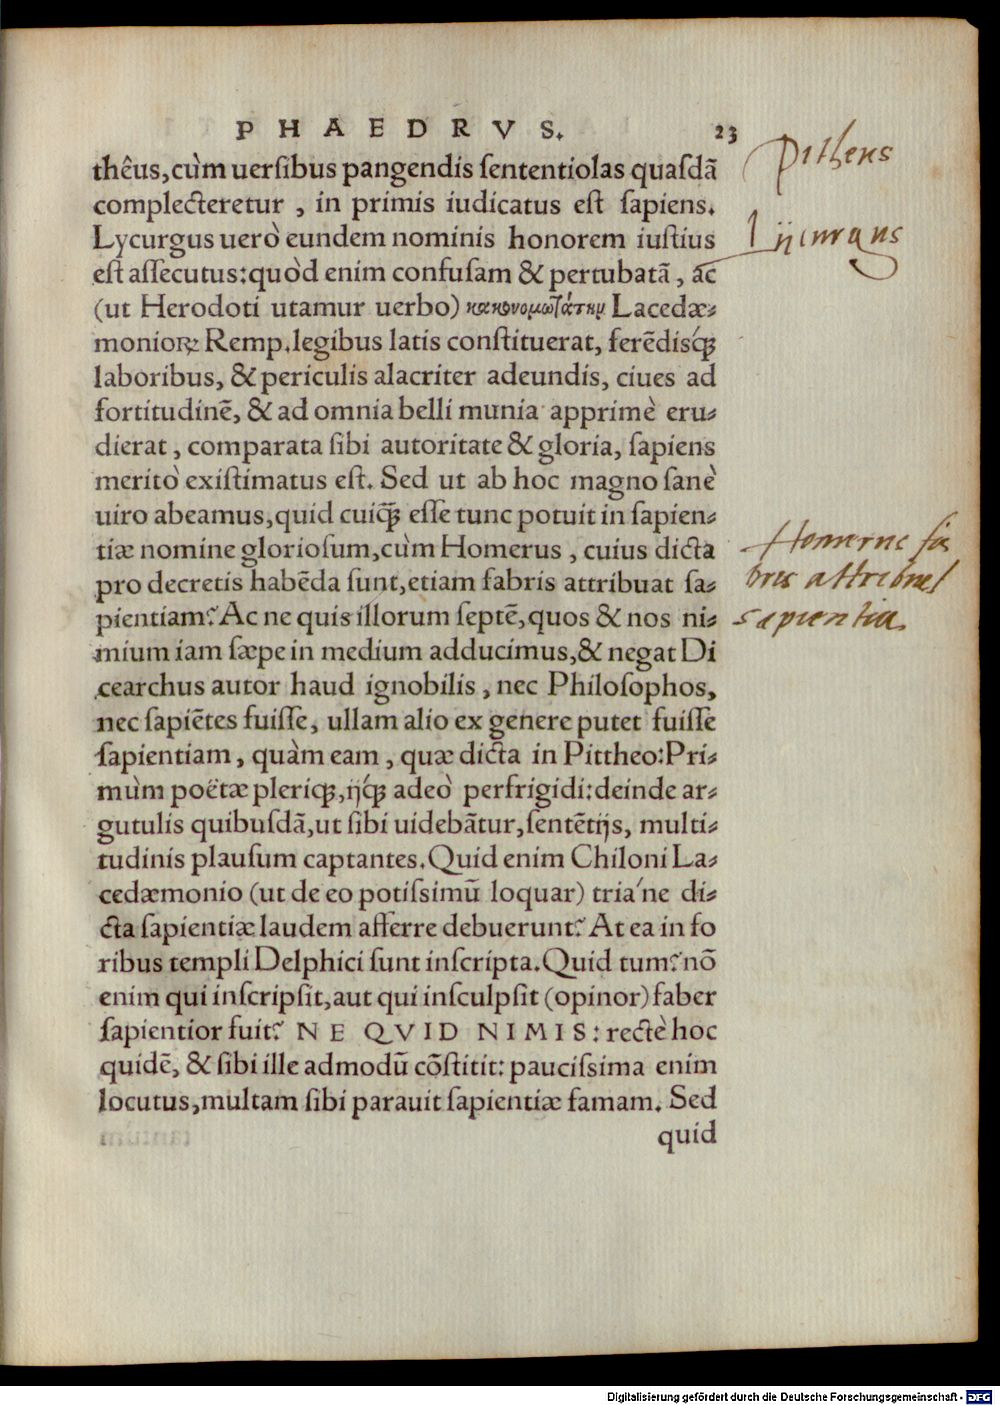 PHAEDRVS. 23
thêus,cùm uersibus pangendis sententiolas quasdã
complecteretur , in primis iudicatus est sapiens.
Lycurgus uerò eundem nominis honorem iustius
est assecutus:quòd enim confusam & pertubatã , ac
(ut Herodoti utamur uerbo) κακονομωτάτην Lacedæ-
monioꝝ Remp.legibus latis constituerat, ferẽdisq́ꝫ
laboribus, & periculis alacriter adeundis, ciues ad
fortitudinẽ, & ad omnia belli munia apprimè eru-
dierat , comparata sibi autoritate & gloria, sapiens
meritò existimatus est. Sed ut ab hoc magno sanè
uiro abeamus,quid cuiq̃ꝫ esse tunc potuit in sapien-
tiæ nomine gloriosum,cùm Homerus , cuius dicta
pro decretis habẽda sunt,etiam fabris attribuat sa-
pientiam? Ac ne quis illorum septẽ,quos & nos ni-
mium iam sæpe in medium adducimus,& negat Di
cearchus autor haud ignobilis , nec Philosophos,
nec sapiẽtes fuisse, ullam alio ex genere putet fuisse
sapientiam , quàm eam , quæ dicta in Pittheo:Pri-
mùm poëtæ pleriqꝫ,ijq́ꝫ adeò perfrigidi:deinde ar-
gutulis quibusdã,ut sibi uidebãtur,sentẽtijs, multi-
tudinis plausum captantes.Quid enim Chiloni La-
cedæmonio (ut de eo potissimũ loquar) tria'ne di-
cta sapientiæ laudem afferre debuerunt? At ea in fo
ribus templi Delphici sunt inscripta.Quid tum? nõ
enim qui inscripsit,aut qui insculpsit (opinor) faber
sapientior fuit? NE QVID NIMIS: rectè hoc
quidẽ, & sibi ille admodũ cõstitit: paucissima enim
locutus,multam sibi parauit sapientiæ famam. Sed
quid
Pitheus
Lijcurgus
Homerus fa
bris attribuet
sapientia.
Digitalisierung gefördert durch die Deutsche Forschungsgemeinschaft - DFG